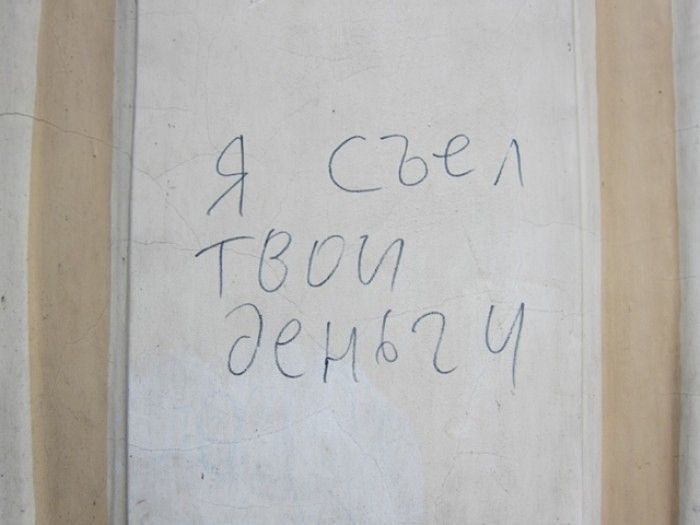 я съел
твои
деньги